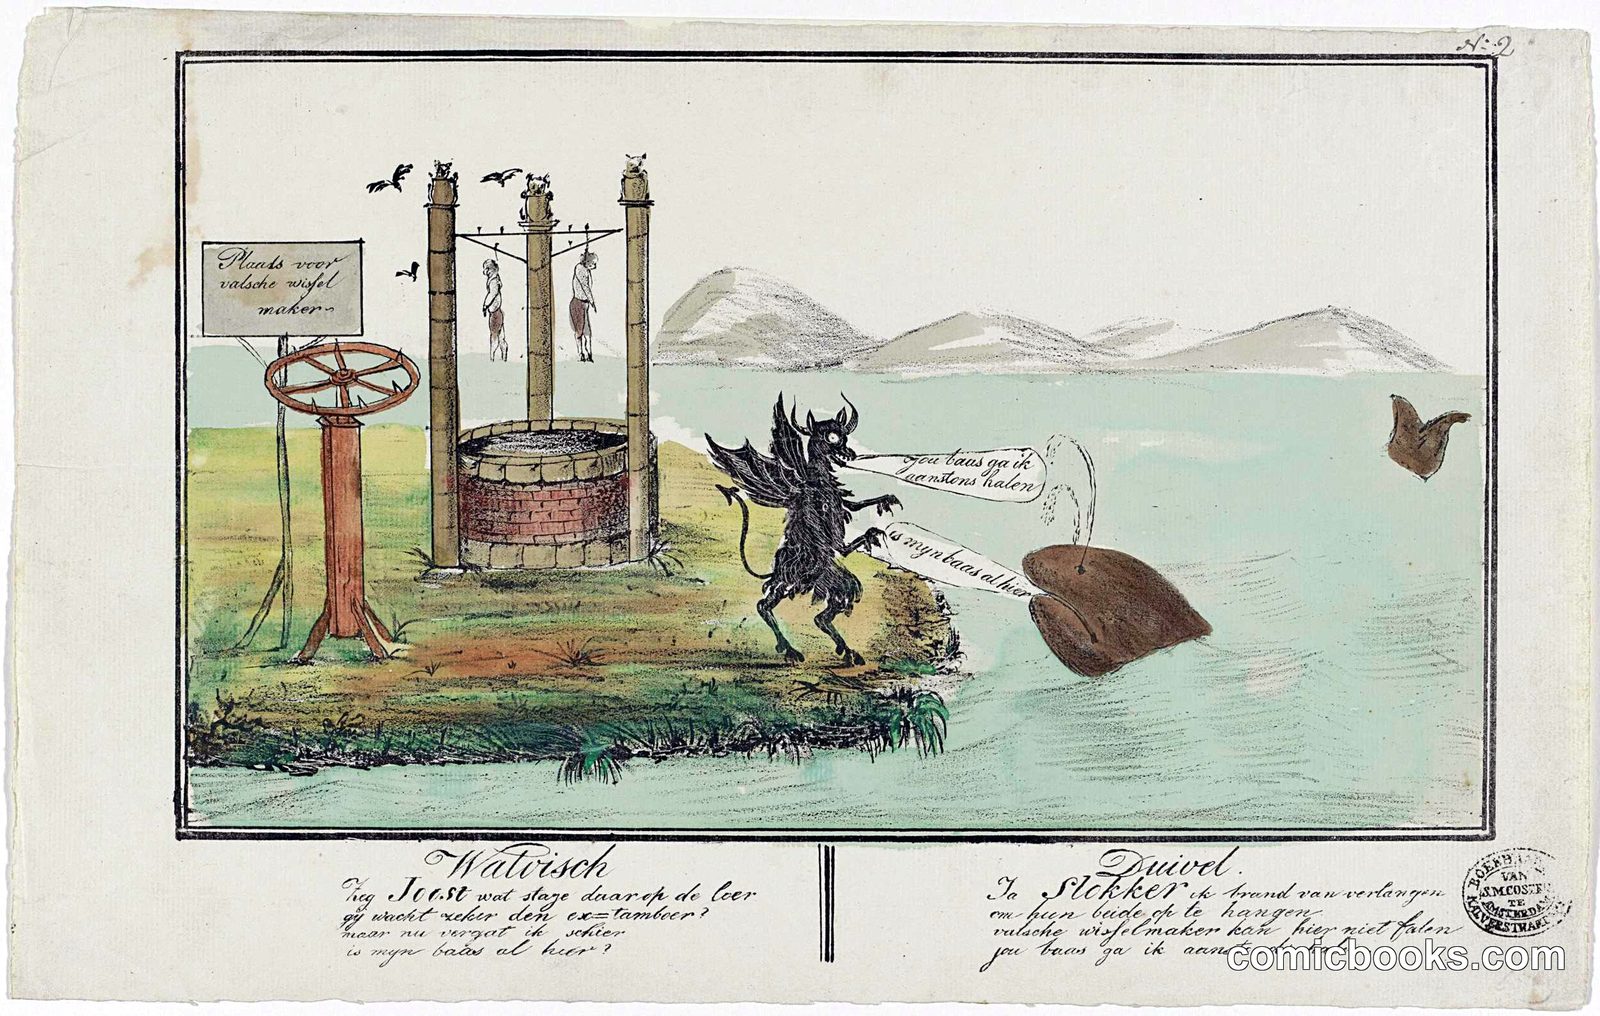 No: 2
Plaats voor
valsche wissel
maker
jou baas ga ik
aanstons halen
is mijn baas al hier
Walvisch
Zeg Joost wat staje daar op de loer
gij wacht zeker den ex=tamboer?
maar nu vergat ik schier
is mijn baas al hier?
Duivel.
Ja Slokker ik brand van verlangen
om hun beide op te hangen
valsche wisselmaker kan hier niet falen
jou baas ga ik
BOEKHA
VAN
S.M. COSTE
TE
AMSTERDAM
KALVERSTRAAT
comicbooks.com